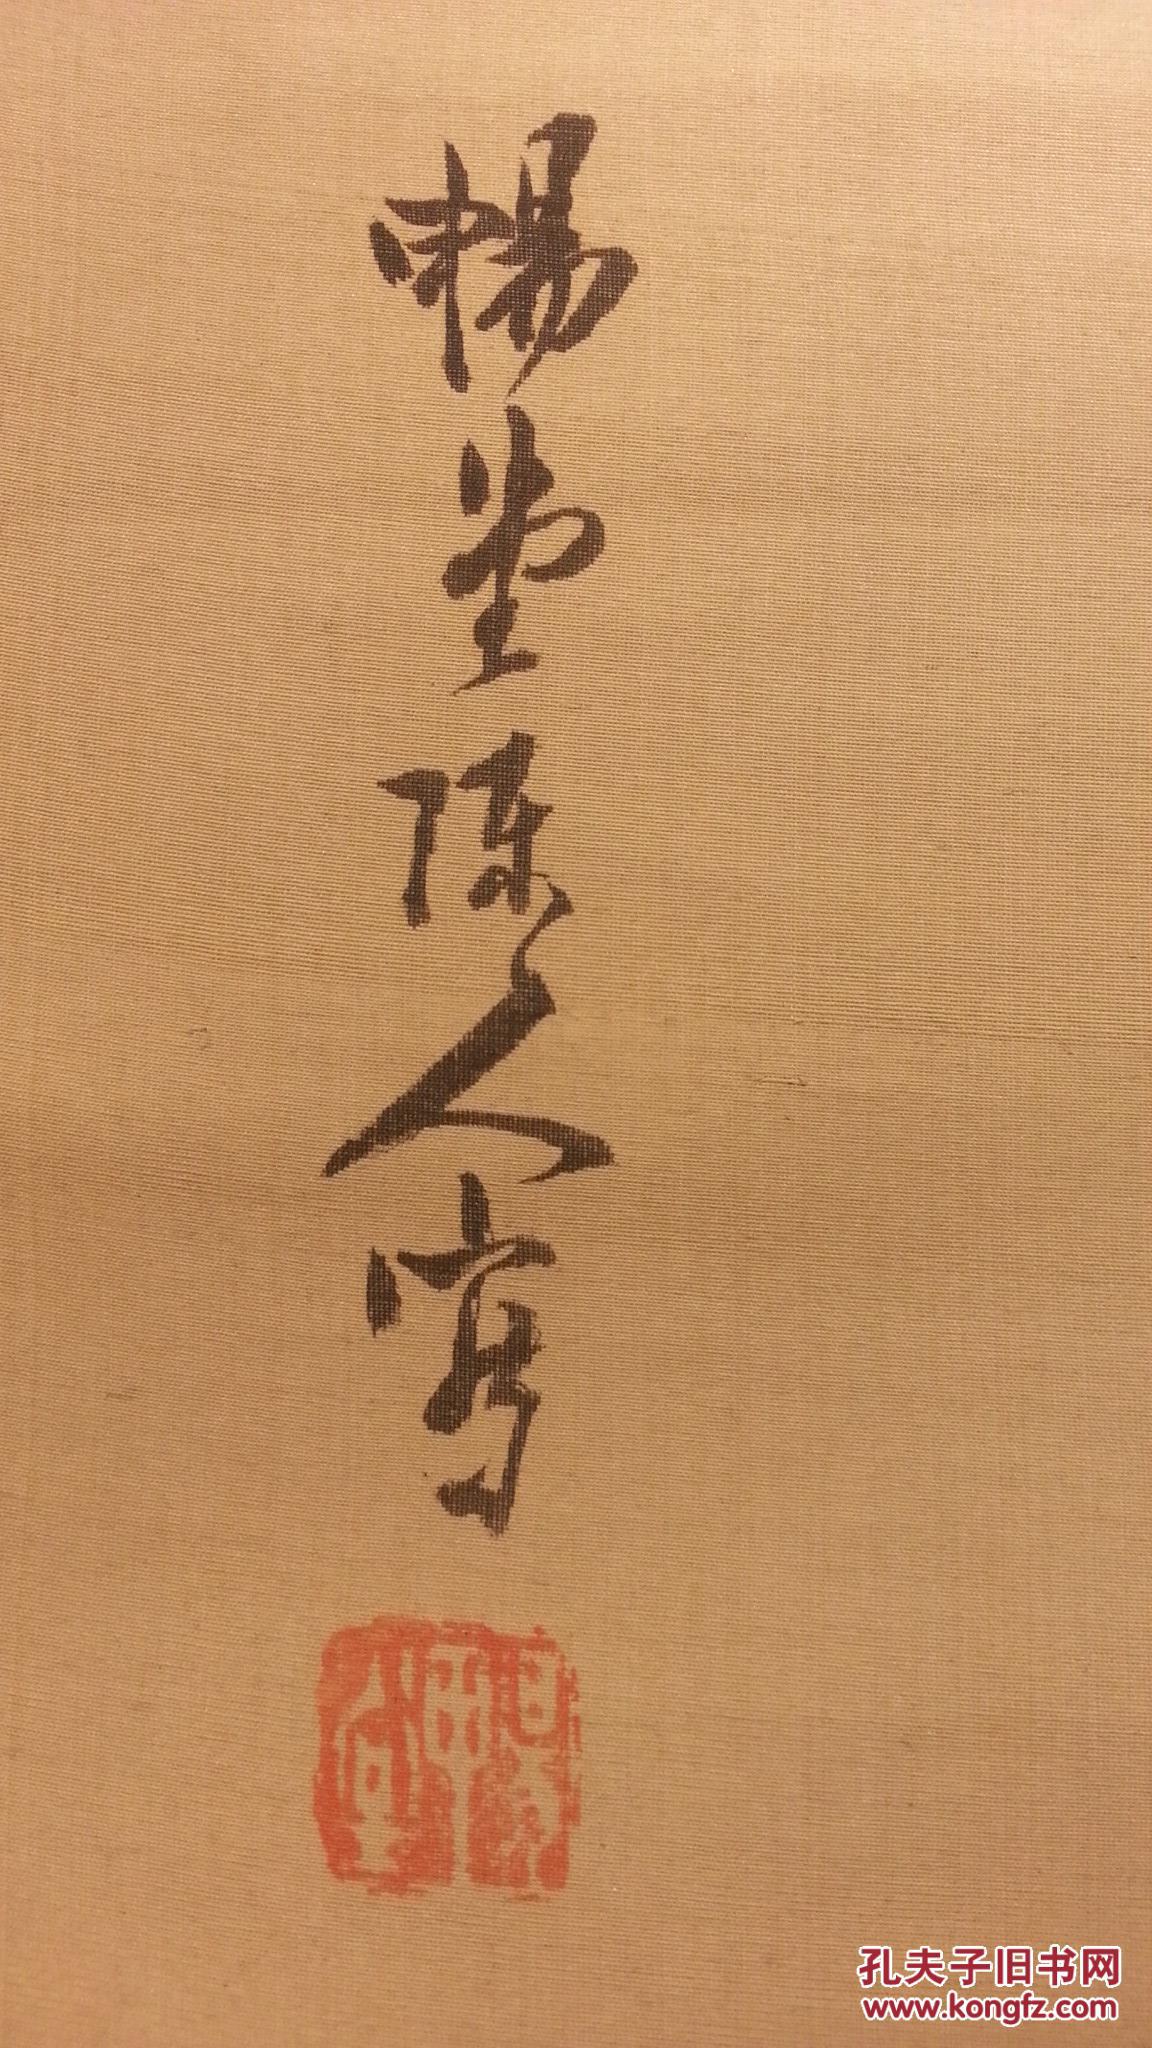 暢堂陳人寫
孔夫子旧书网
www.kongfz.com